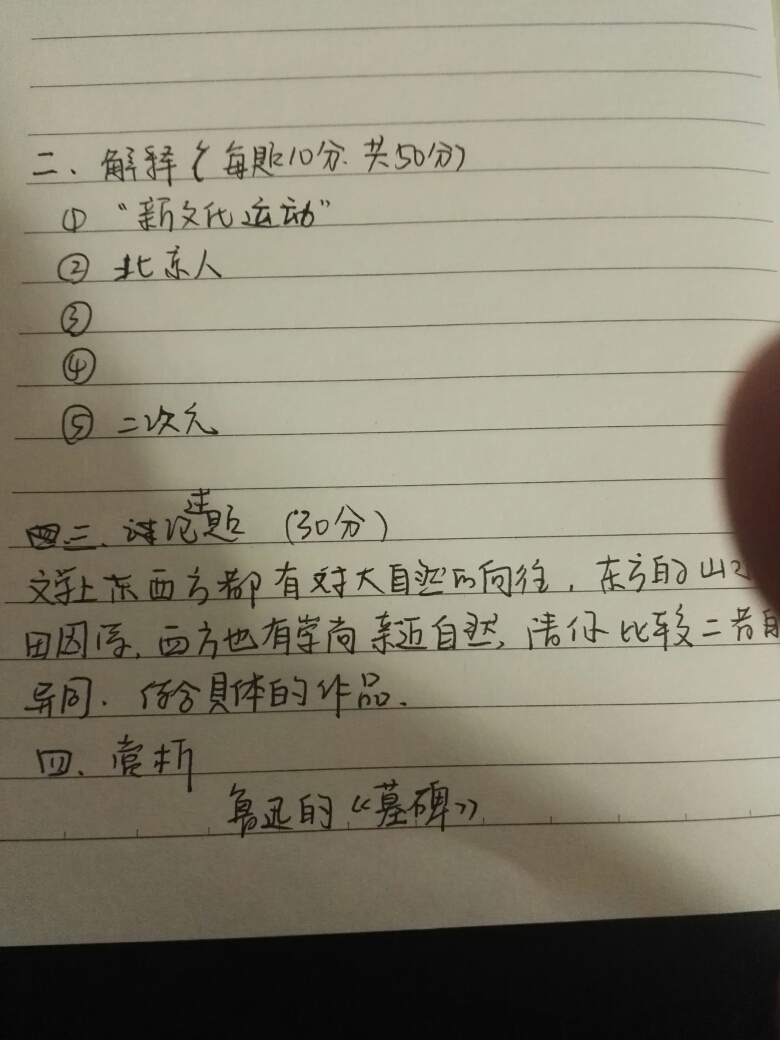 二、解释（每题10分.共50分）
① “新文化运动”
② 北京人
③
④
⑤ 二次元
三、论述题 (30分)
文学上东西方都有对大自然的向往，东方的山水
田园诗，西方也有崇尚亲近自然，请你比较二者
异同．结合具体的作品．
四、赏析
鲁迅的《墓碑》